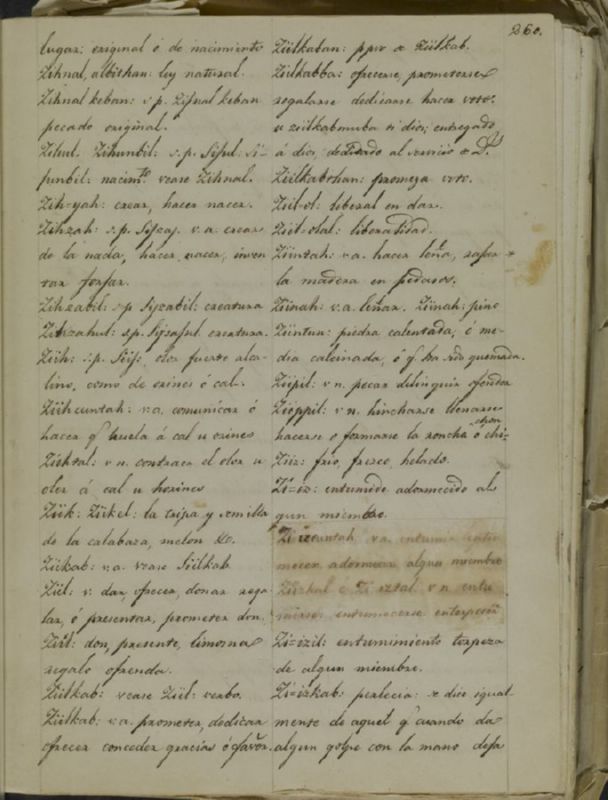 260.
lugar: original ó de nacimiento
Zihnal, albithan: ley natural.
Zihnal keban: s.p. Sihnal keban
pecado original.
Zihul. Zihunbil: s.p. Sihul. Si-
hunbil: nacimto. vease Zihnal.
Zih-yah: crear, hacer nacer.
Zihzah: s.p. v.a. crear
de la nada, hacer nacer, inven
tar forjar.
Zihzabil: s.p. creatura
Zihzahul: s.p. creatura.
Ziih: s.p. Siih: olor fuerte alca-
lino, como de orines ó cal.
Ziihcuntah: v.a. comunicar ó
hacer q huela á cal u orines
Ziihtal: v n. contraer el olor u
oler á cal u horines
Ziik: Ziikel: la tripa y semilla
de la calabaza, melon &c.
Ziikab: v.a. vease Siilkab.
Ziil: v. dar, ofrecer, donar rega
lar, ó presentar, prometer don.
Ziil: don, presente, limosna
regalo ofrenda.
Ziilkab: vease Ziil: verbo.
Ziilkab: v.a. prometer, dedicar
ofrecer conceder gracias ó favor.
Ziilkaban: ppro de Ziilkab.
Ziilkabba: ofrecerse, prometerse
regalarse dedicarse hacer voto.
u ziilkabmuba ti dios; entregado
á dios; dedicado al servicio de Ds.
Ziilkabthan: promeza voto.
Ziil-ol: liberal en dar.
Ziil-olal: liberalidad.
Ziintah: v.a. hacer leña, rajar
la madera en pedasos.
Ziinah: v.a. leñar. Ziinah: pino
Ziintun: piedra calentada, ó me-
dia calcinada, ó q. ha sido quemada.
Ziipil: v n. pecar delinquir ofender
Ziippil: v n. hincharse llenarse
hacerse o formarse la roncha ó chi-
chon
Ziiz: frio, fresco, helado.
Zi=iz: entumido adormecido al
gun miembro.
Zi izcuntah v a. entumir
mecer adormecer algun miembro
Ziizhal ó Zi iztal v n. entu
mirse: entumecerse entorpecer
Zi=izil: entumimiento torpeza
de algun miembro.
Zi=izkab: perlecia: se dice igual
mente de aquel q cuando da
algun golpe con la mano deja